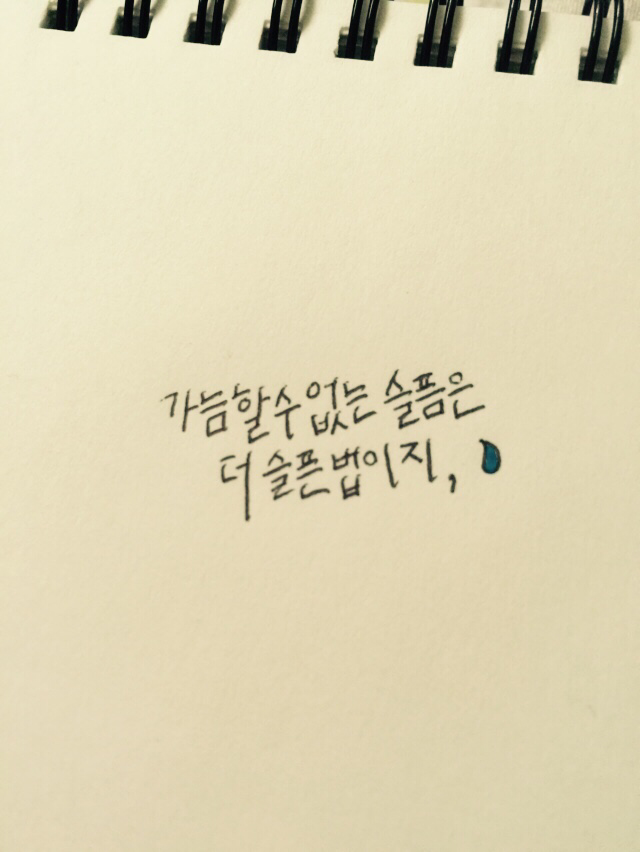 가늠할수없는 슬픔은
더 슬픈법이지,